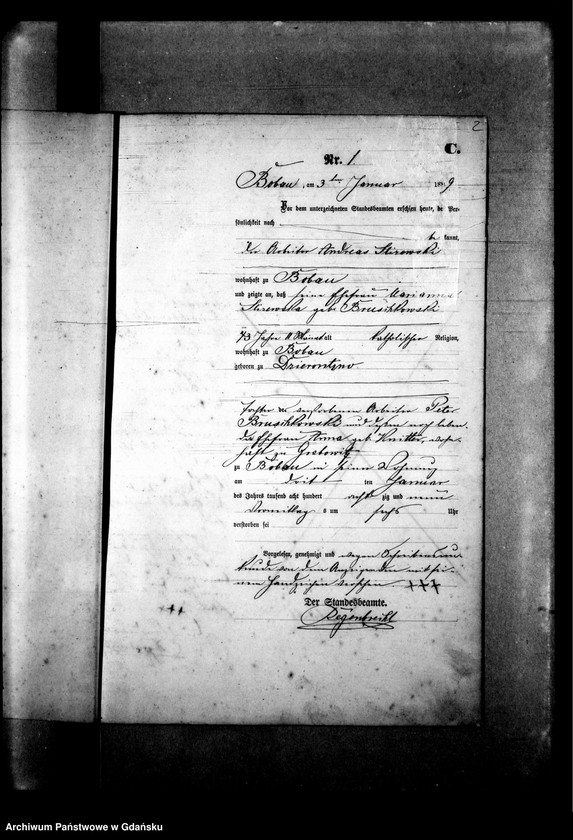 2
C.
Nr. 1.
Bobau, am 3ten Januar 1889
Vor dem unterzeichneten Standesbeamten erschien heute, der Per-
sönlichkeit nach
be kannt,
der Arbeiter Andreas
wohnhaft zu Bobau
und zeigte an, daß seine Ehefrau Marianna
geb.
Jahre 11 Monat alt katholischer Religion,
wohnhaft zu Bobau
geboren zu
Tochter des verstorbenen Arbeiter Peter
und dessen noch leben-
den Ehefrau Anna geb. wohn-
haft zu
zu Bobau in seiner Wohnung
am drit ten Januar
des Jahres tausend acht hundert acht zig und neun
Vormittags um sechs Uhr
verstorben sei
Vorgelesen, genehmigt und wegen Schreibensun-
kunde von dem Anzeigenden mit sei-
nem Handzeichen versehen +++
Der Standesbeamte.
Archiwum Państwowe w Gdańsku